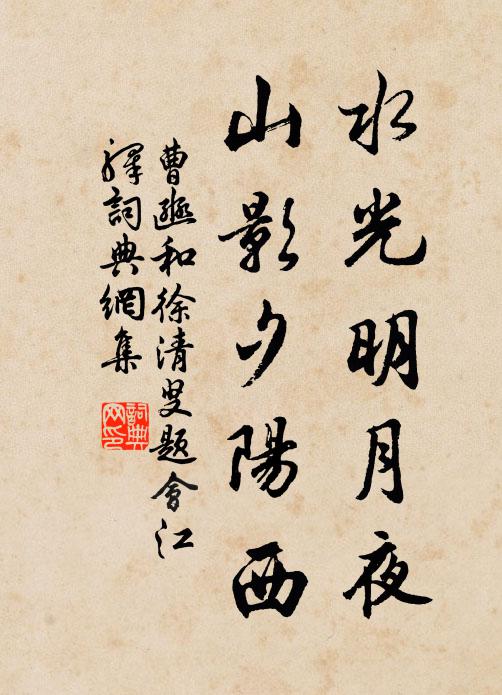 水光明月夜
山影夕陽西
曹遜和徐清叟題會江
驛詞典網集
詞典
网印